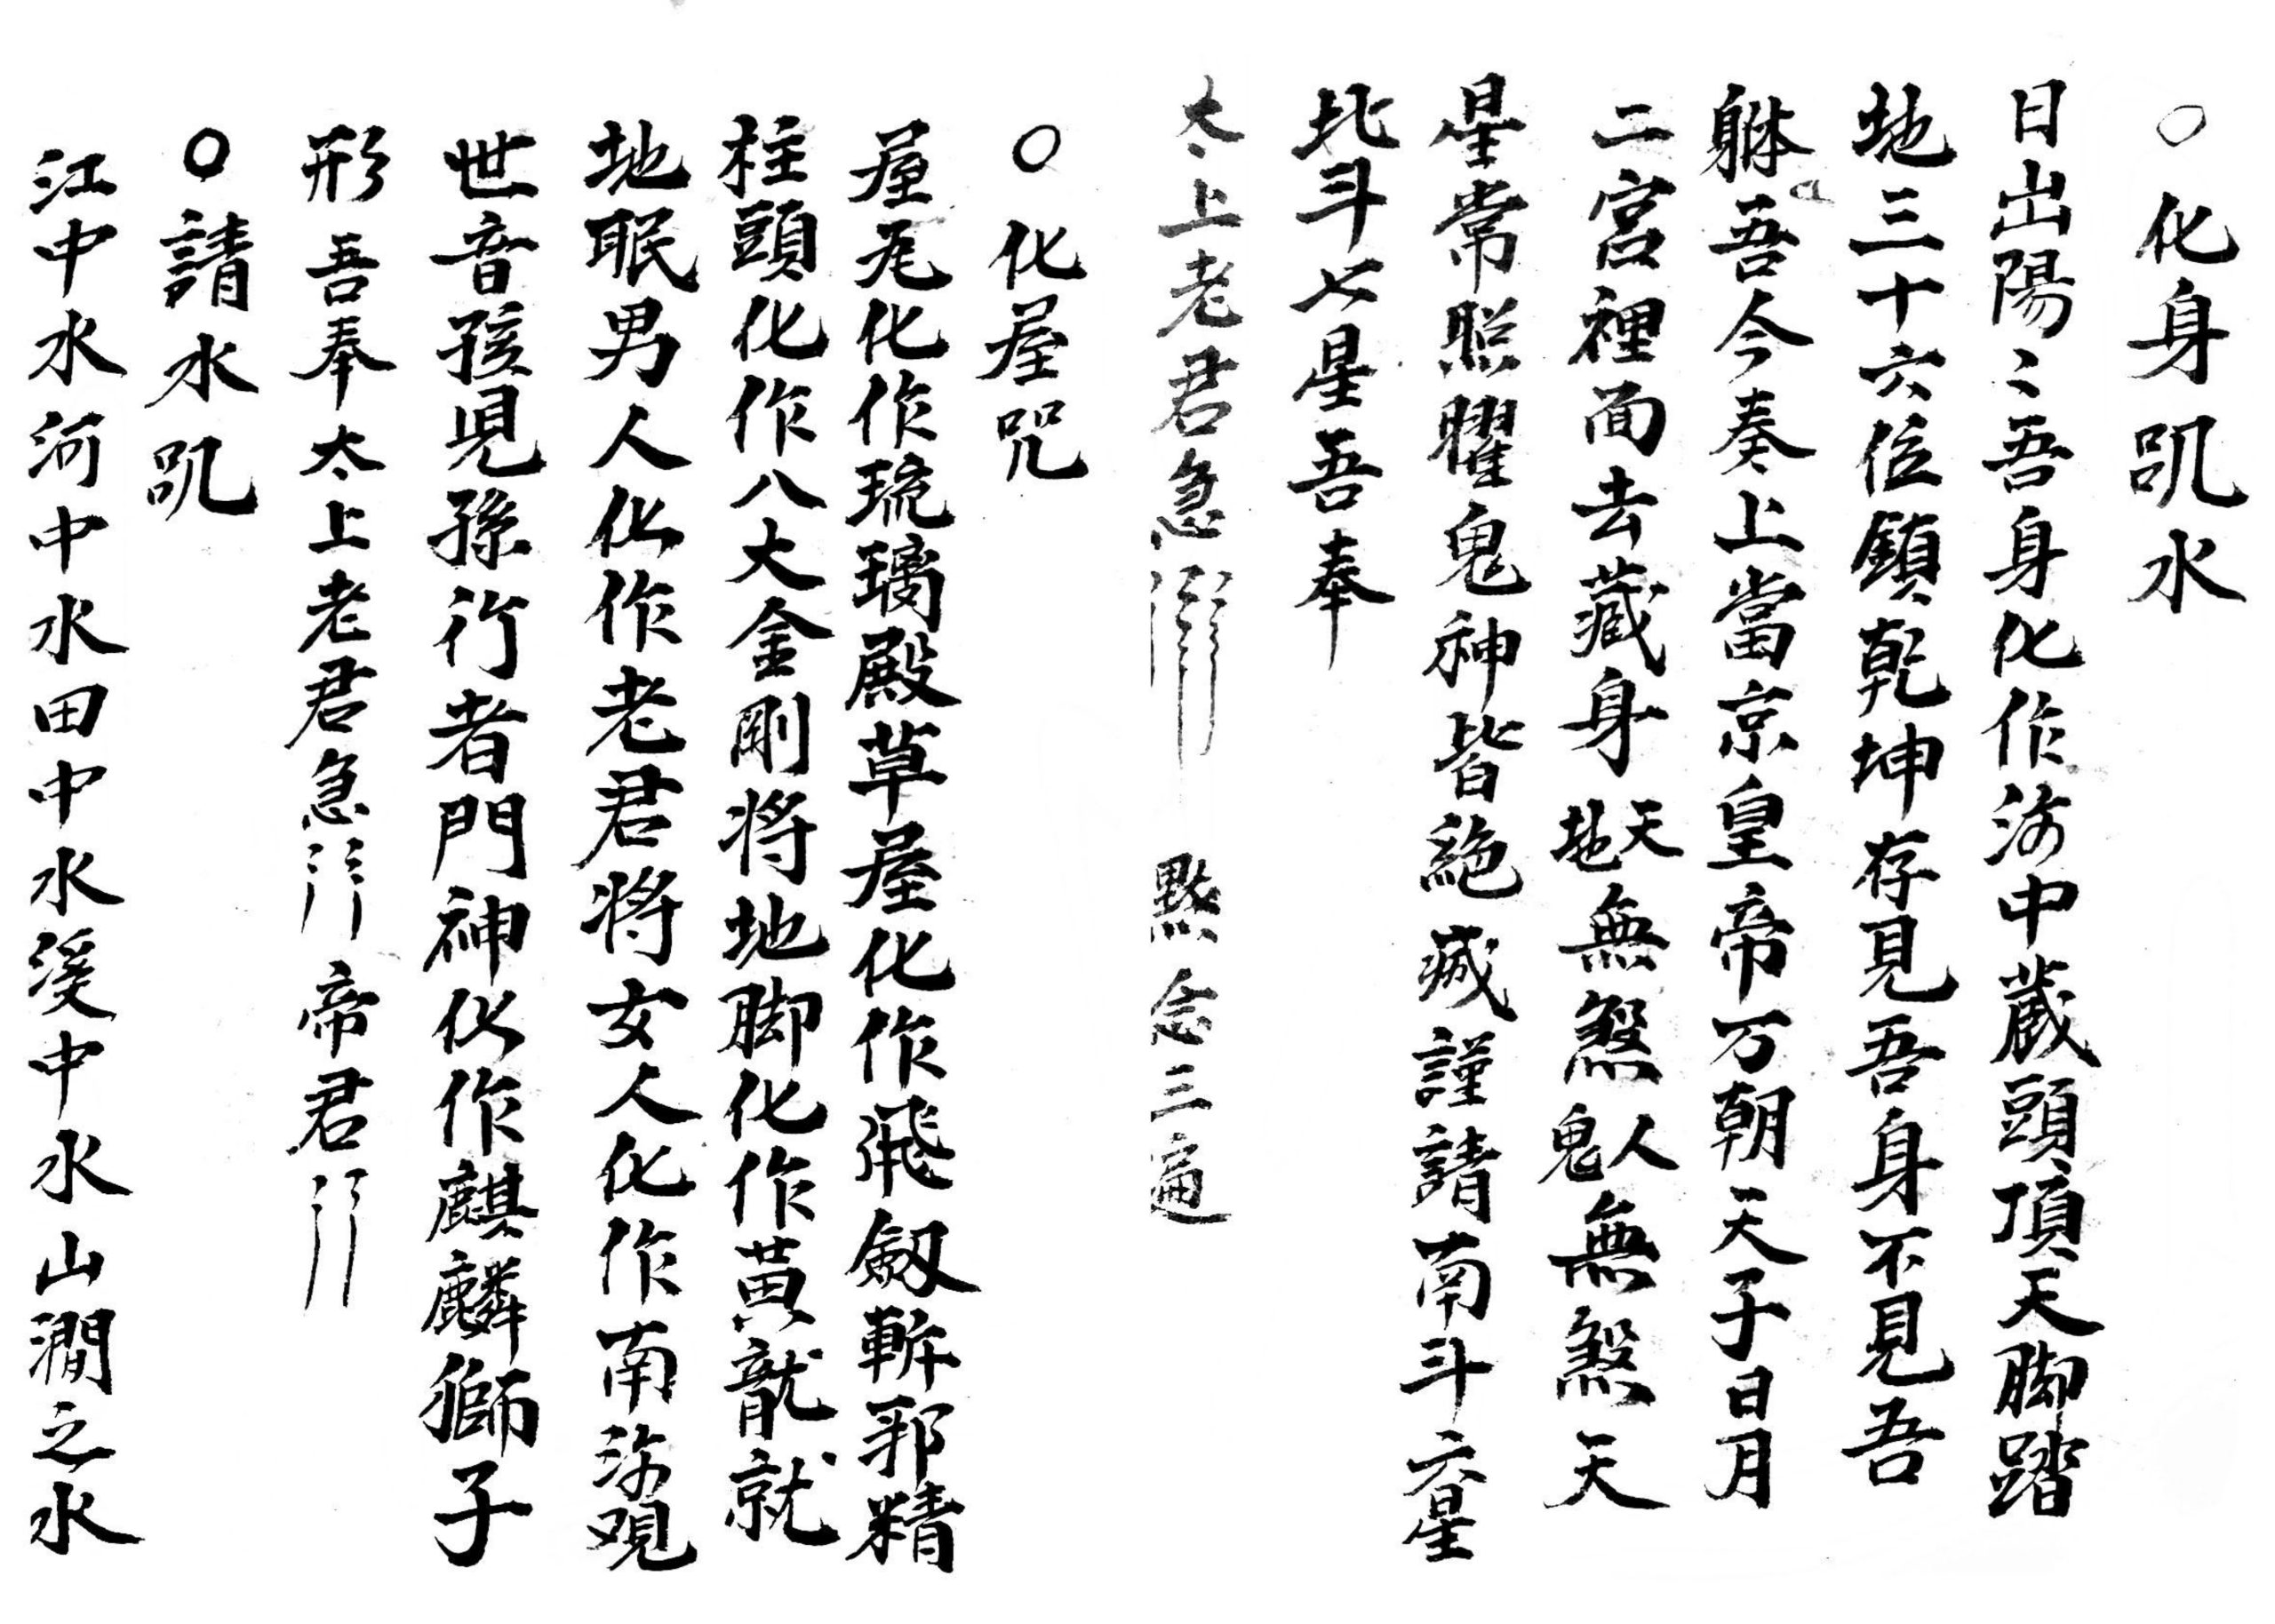 ○化身咒水
日出陽〻吾身化作海中藏頭頂天脚踏
地三十六位鎮乾坤存見吾身不見吾
躰吾今奏上當京皇帝万朝天子日月
二宮裡面去藏身天地無煞人鬼無煞天
星常照曜鬼神皆絶滅謹請南斗六星
北斗七星吾奉
太上老君急 黙念三遍
○化屋咒
屋瓦化作琉璃殿草屋化作飛劔斬邪精
柱頭化作八大金剛将地脚化作黄龍就
地眠男人化作老君将女人化作南海观
世音孩児孫行者門神化作麒麟獅子
形吾奉太上老君急 帝君
○請水咒
江中水河中水田中水溪中水山澗之水